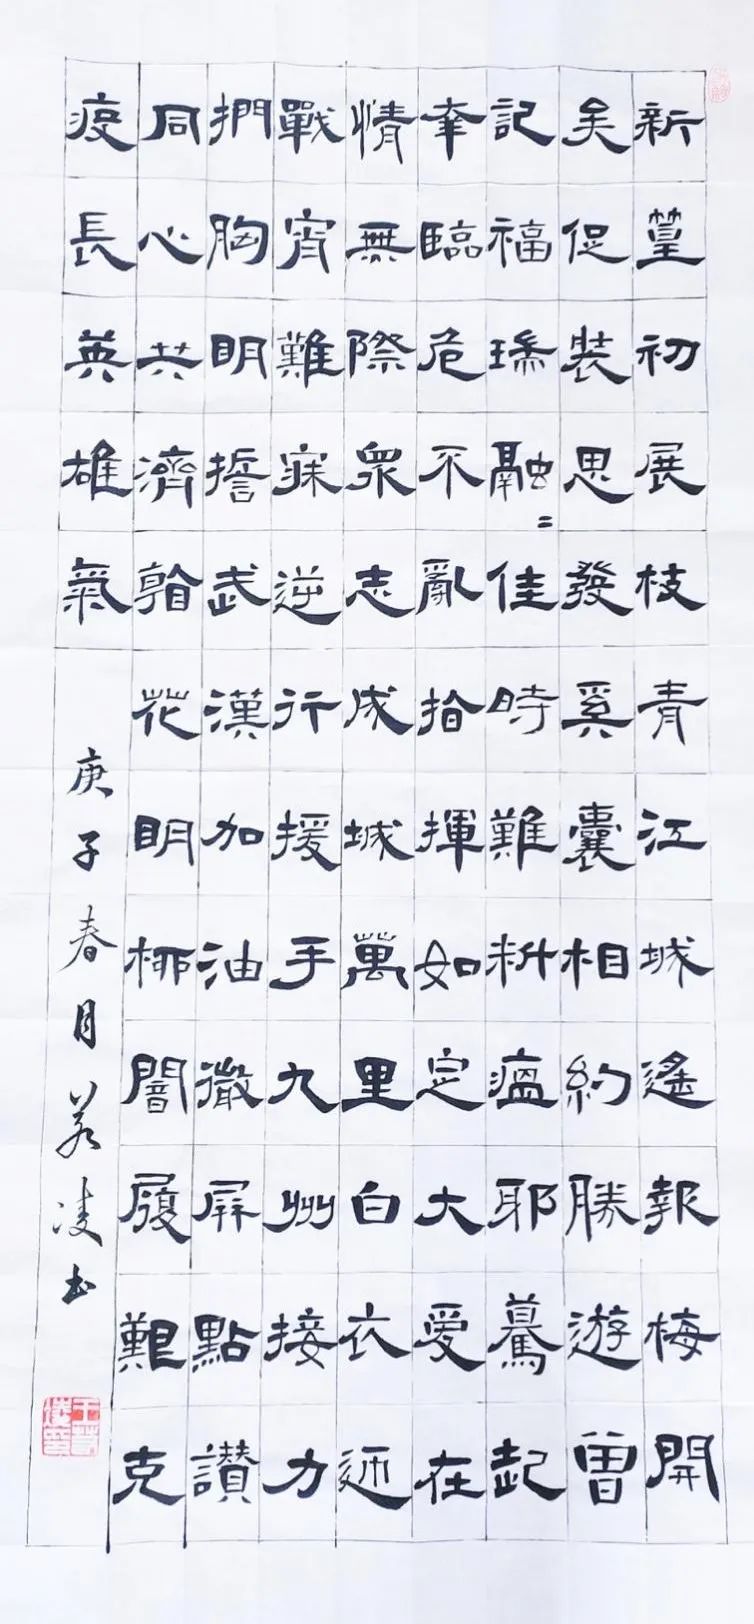 新篁初展枝青江城遙報梅開
矣促裝思發奚囊相約勝遊曾
記福瑞融〻佳時難料瘟耶驀起
幸臨危不亂指揮如定大愛在
情無際眾志成城萬里白衣
戰宵難寐逆行援手九州接力
捫胸明誓武漢加油微屏點讚
同心共濟花明柳闇履艱克
疫長英雄氣
庚子春月若凌书